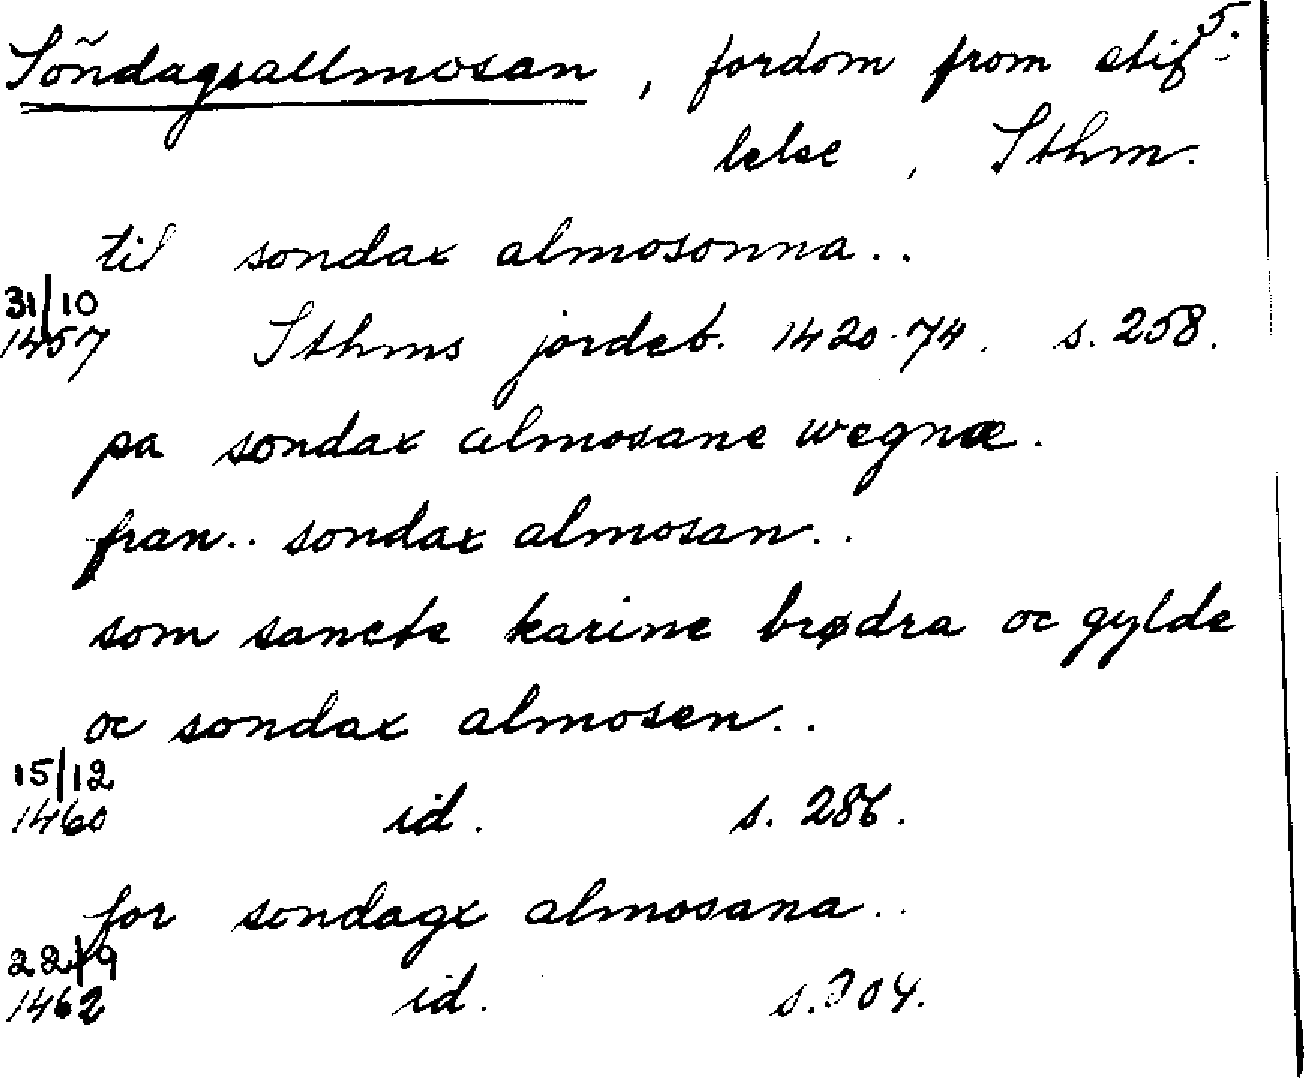 5.
Söndagsallmosan, fordom from stif-
telse, Sthm.
til sondax almosonna..
31/10
1457 Sthms jordeb. 1420-74. s. 258.
pa sondax almosane wegnæ.
fran.. sondax almosan..
som sancte karine brødra oc gylde
oc sondax almosen..
15/12
1460 id. s. 286.
for sondagx almosana..
22/9
1462 id. s. 304.